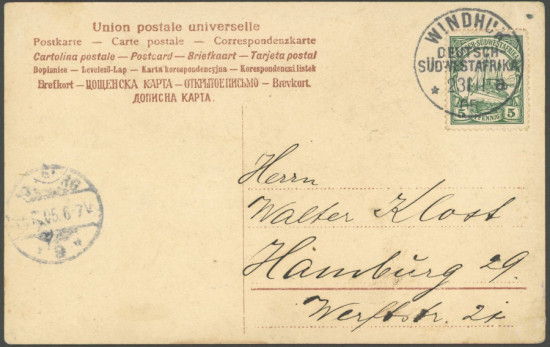 Union postale universelle
Postkarte — Carte postale — Correspondenzkarte
Cartolina postale — Postcard — Briefkaart — Tarjeta postal
Dopisnice — Levelező-Lap — Karta korespondencyjna — Korespondencni listek
Brefkort — ЦОЩЕНСКА КАРТА — ОТКРЫТОЕ ПИСЬМО — Brevkort.
ДОПИСНА КАРТА.
WINDHUK
DEUTSCH-
SÜDWESTAFRIKA
5 PFENNIG 5
Herrn
Walter Klost
Hamburg 29.
Werftstr. 2i
05.6-7V.